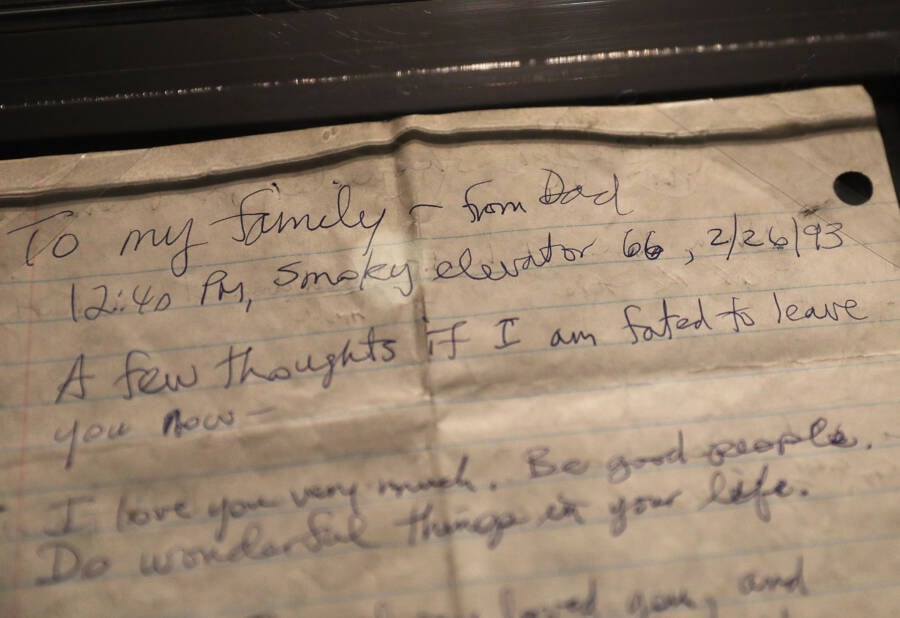 To my family - from Dad
12:40 PM, Smoky elevator 66, 2/26/93
A few thoughts if I am fated to leave
you now -
I love you very much. Be good people.
Do wonderful things in your life.
loved you, and